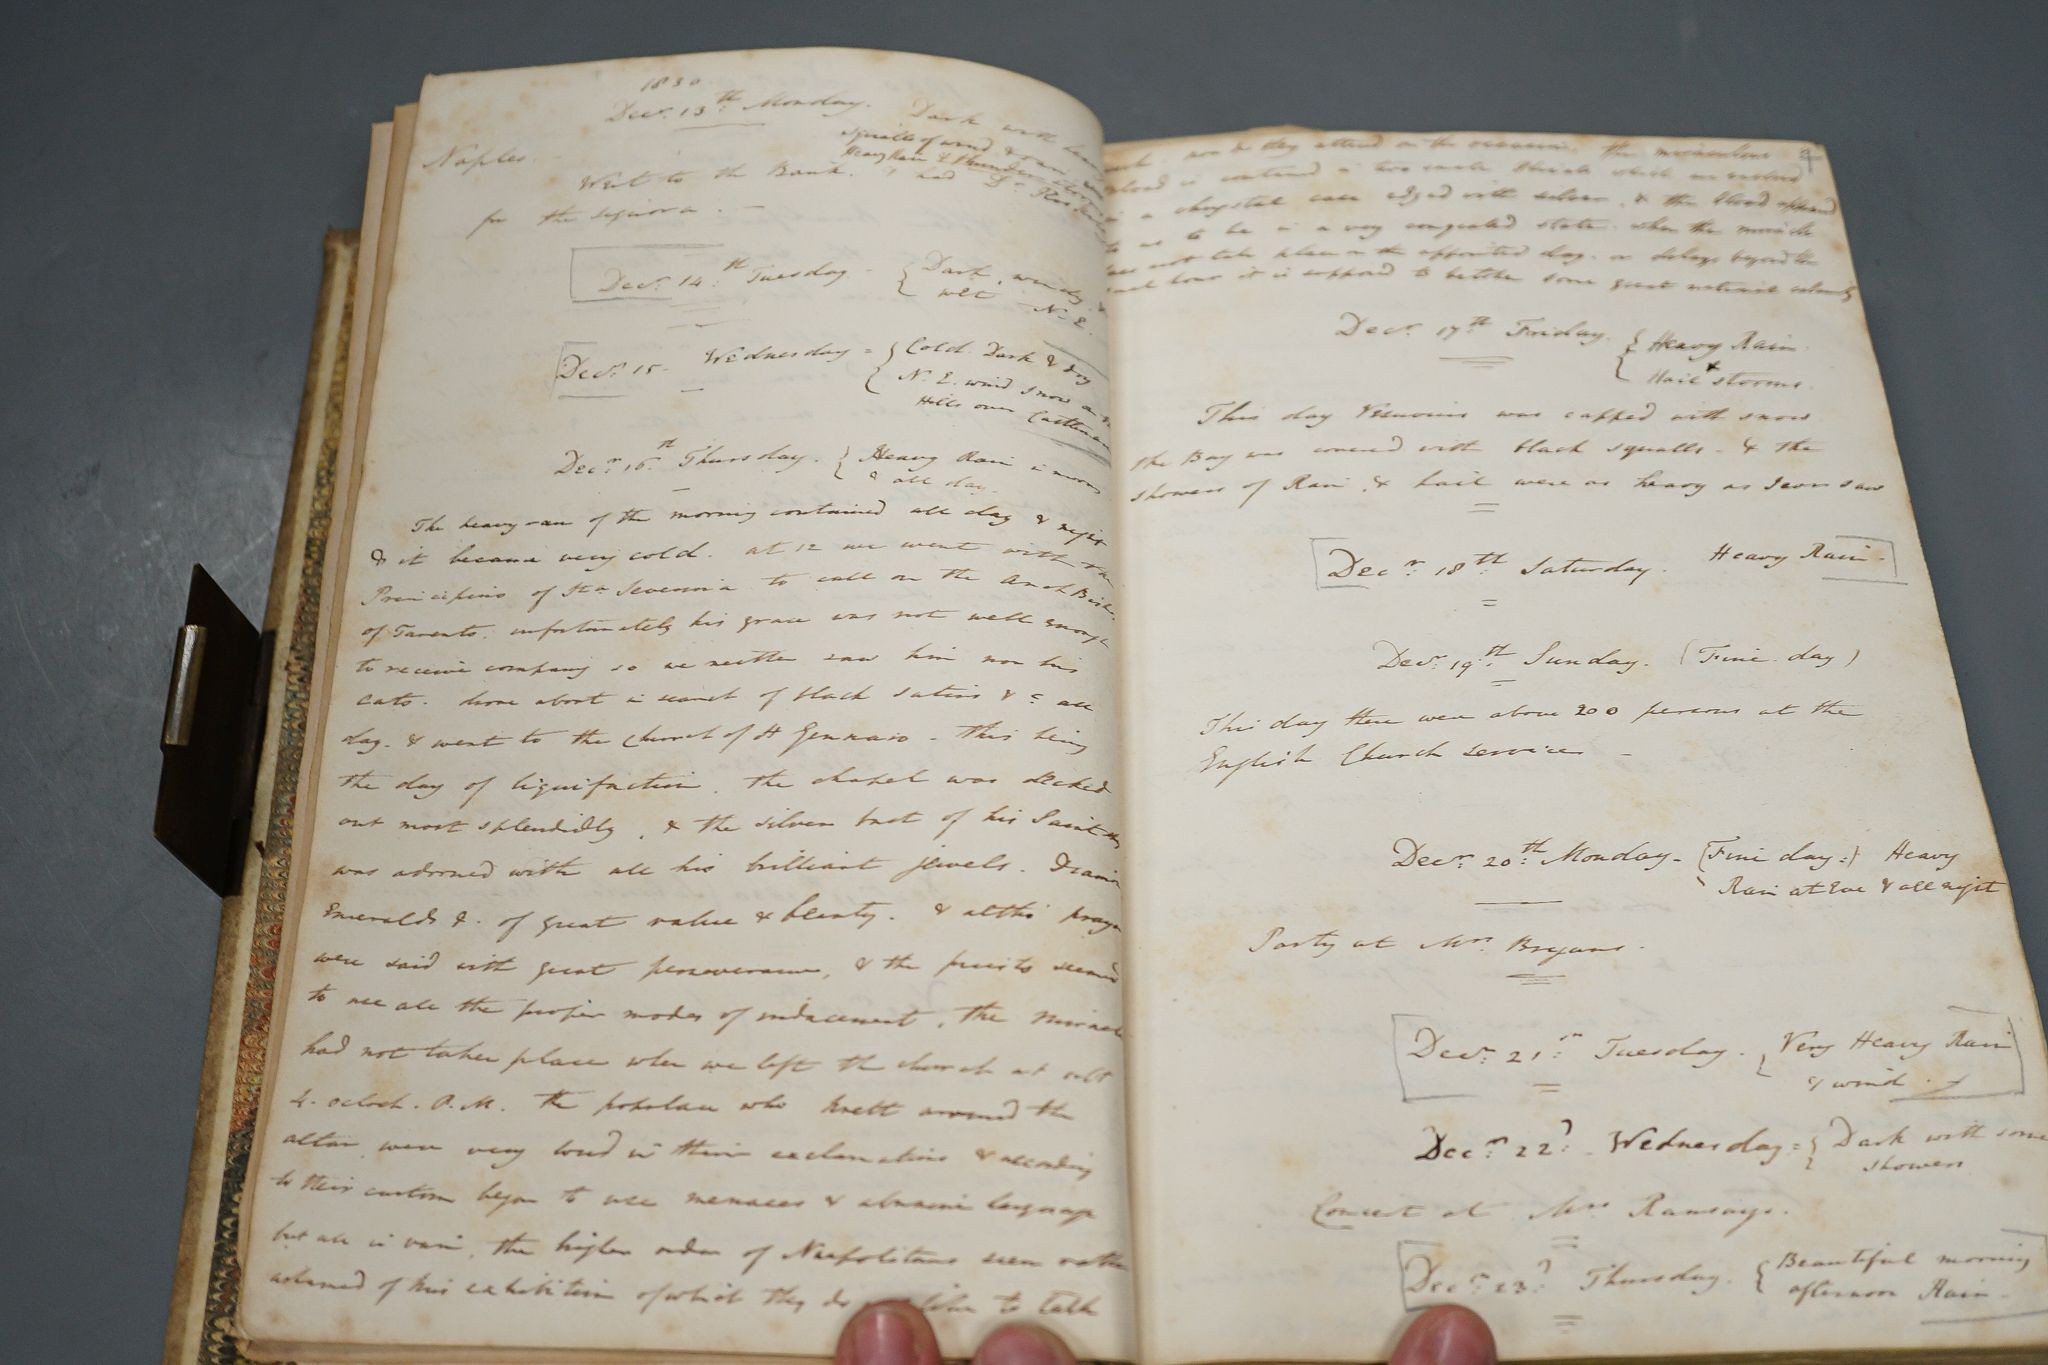 1830
Decr. 13th Monday. Dark with heavy
squalls of wind & rain
Heavy Rain & Thunder
Naples.
Went to the Bank. & had Dr.
for the signora. —
Decr. 14th Tuesday - { Dark, windy &
wet N. E.
Decr. 15. Wednesday = { Cold. Dark & dry
N. E. wind snow on the
Hills over
Decr. 16th Thursday. { Heavy Rain in morng
& all day.
The heavy rain of the morning continued all day & night
& it became very cold. at 12 we went with the
of Sta Severina to call on the Arch Bish.
of Tarento. unfortunately his grace was not well enough
to receive company so we neither saw him nor his
cats. drove about in search of black satins &c all
day. & went to the church of St Gennaro - This being
the day of liquifaction. the chapel was decked
out most splendidly, & the silver bust of his Saint
was adorned with all his brilliant jewels.
Emeralds &. of great value & beauty. & altho' prayers
were said with great perseverance, & the priests seemed
to use all the proper modes of inducement, the Miracle
had not taken place when we left the church at
4. oclock. P.M. the populace who knelt around the
altar, were very loud in their exclamations & according
to their custom began to use menaces & abusive language
but all in vain, the higher order of Neapolitans seem rather
ashamed of this exhibition of which they do like to talk
much. nor do they attend on the occasion. the miraculous
blood is contained in two small which are enclosed
in a chrystal case edged with silver, & the blood appeared
to us to be in a very congealed state. when the miracle
does not take place on the appointed day. or delays beyond the
usual hour it is supposed to betoken some great national calamity
Decr. 17th Friday. { Heavy Rain
& Hail storms.
This day Vesuvius was capped with snow
the Bay was covered with black squalls - & the
showers of Rain & hail were as heavy as I ever saw
Decr. 18th Saturday. Heavy Rain -
Decr. 19th Sunday. (Fine day)
This day there were above 200 persons at the
English Church service -
Decr. 20th Monday - (Fine day:) Heavy
Rain at Eve & all night
Party at Mrs. Bryans.
Decr. 21st Tuesday. { Very Heavy Rain
& wind.
Decr. 22d. Wednesday = { Dark with some
showers
Concert at Mrs Ramsays.
Decr. 23d Thursday. { Beautiful morning
afternoon Rain -